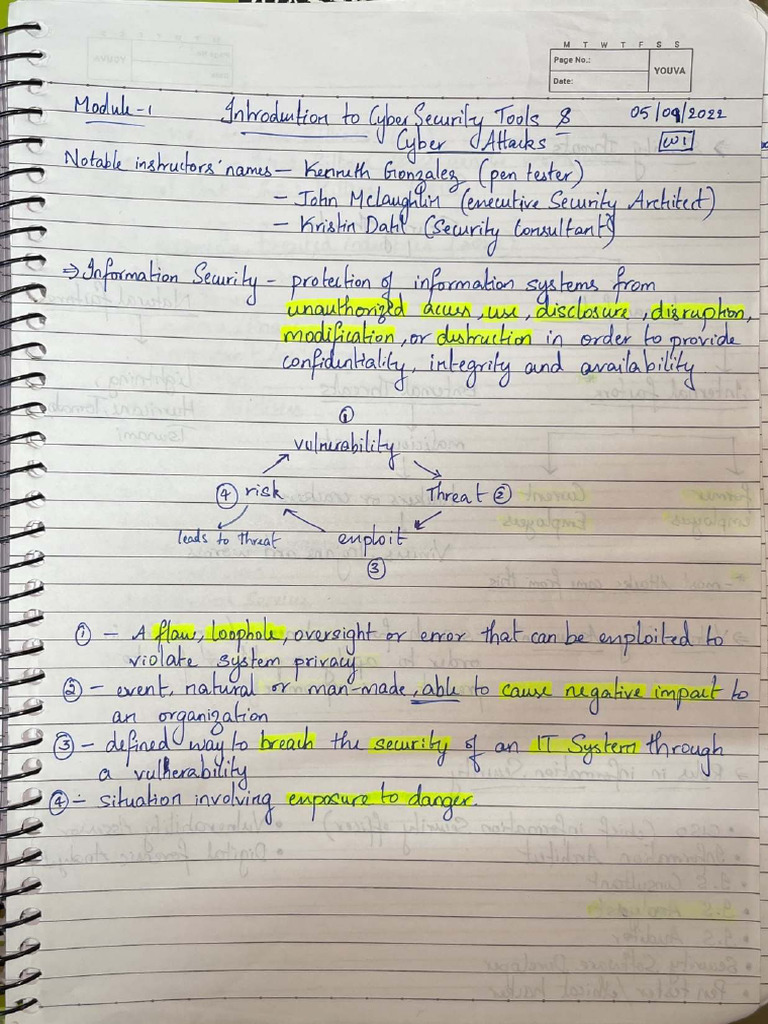 M T W T F S S
Page No.:
Date:
YOUVA
Module-1 Introduction to Cyber Security Tools & 05/09/2022
Cyber Attacks W1
Notable instructors' names – Kenneth Gonzalez (pen tester)
– John Mclaughlin (executive Security Architect)
– Kristin Dahl (Security Consultant)
⇒ Information Security – protection of information systems from
unauthorized access, use, disclosure, disruption,
modification, or destruction in order to provide
confidentiality, integrity and availability.
①
vulnerability
④ risk Threat ②
leads to threat exploit
③
① – A flaw, loophole, oversight or error that can be exploited to
violate system privacy.
② – event, natural or man-made, able to cause negative impact to
an organization
③ – defined way to breach the security of an IT System through
a vulnerability
④ – situation involving exposure to danger.